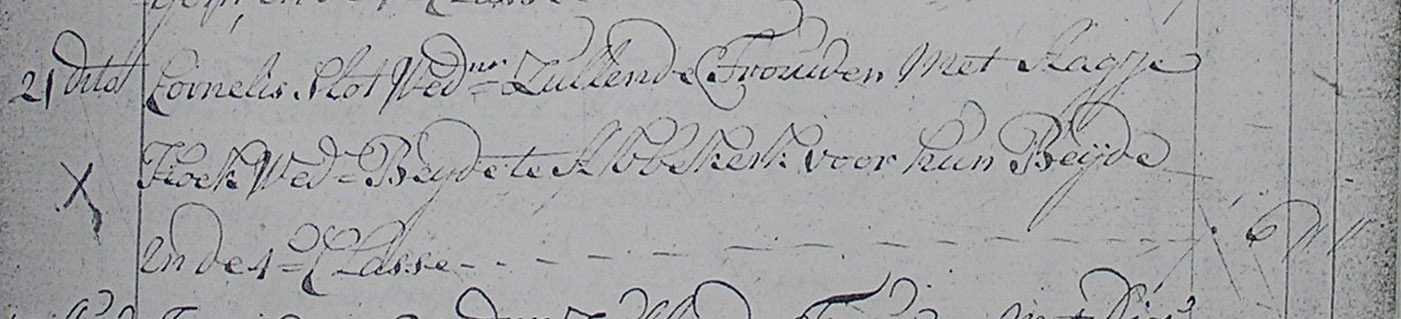 21 dito Cornelis Slot Wednr Zullende Trouwen Met Aagje
Hoek Wed = Beyde te Abbekerk voor hun Beyde
in de 4 = Classe - - - - - - 6 " "